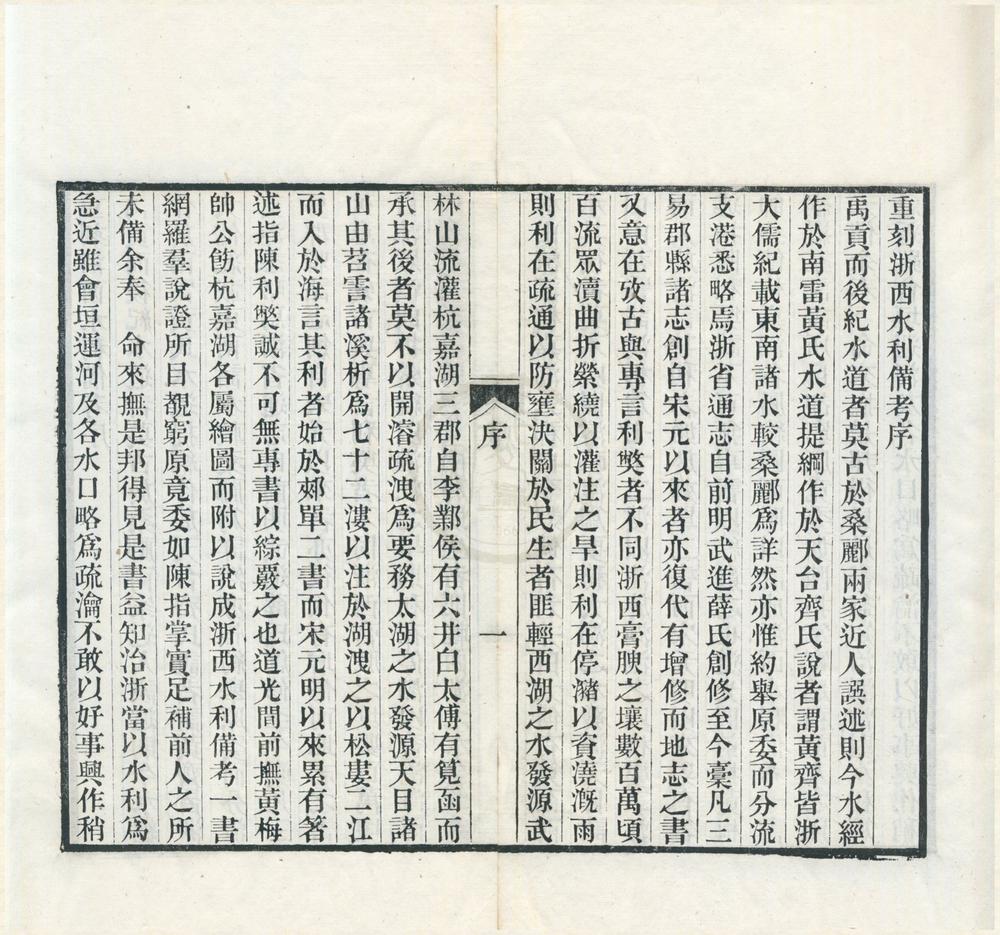 重刻浙西水利備考序
禹貢而後紀水道者莫古於桑酈兩家近人譔述則今水經
作於南雷黃氏水道提綱作於天台齊氏說者謂黃齊皆浙
大儒紀載東南諸水較桑酈爲詳然亦惟約舉原委而分流
支港悉略焉浙省通志自前明武進薛氏創修至今稾凡三
易郡縣諸志創自宋元以來者亦復代有增修而地志之書
又意在攷古與專言利獘者不同浙西膏腴之壤數百萬頃
百流眾瀆曲折縈繞以灌注之旱則利在停瀦以資澆漑雨
則利在疏通以防壅決關於民生者匪輕西湖之水發源武
序
一
林山流灌杭嘉湖三郡自李鄴侯有六井白太傅有筧函而
承其後者莫不以開濬疏洩爲要務太湖之水發源天目諸
山由苕霅諸溪析爲七十二漊以注於湖洩之以松婁二江
而入於海言其利者始於郟單二書而宋元明以來累有著
述指陳利獘誠不可無專書以綜覈之也道光間前撫黃梅
帥公飭杭嘉湖各屬繪圖而附以說成浙西水利備考一書
網羅羣說證所目覩窮原竟委如陳指掌實足補前人之所
未備余奉　命來撫是邦得見是書益知治浙當以水利爲
急近雖會垣運河及各水口略爲疏瀹不敢以好事興作稍